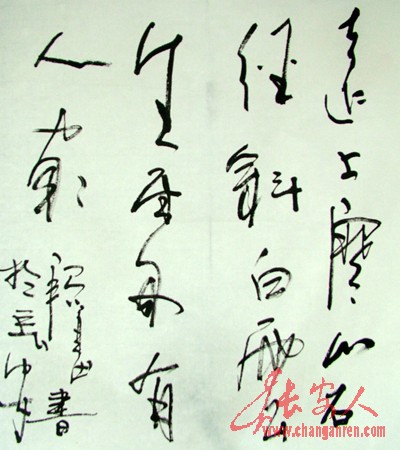 遠上寒山石
径斜白雲
生處有
人家
書
长安人
www.changanren.com